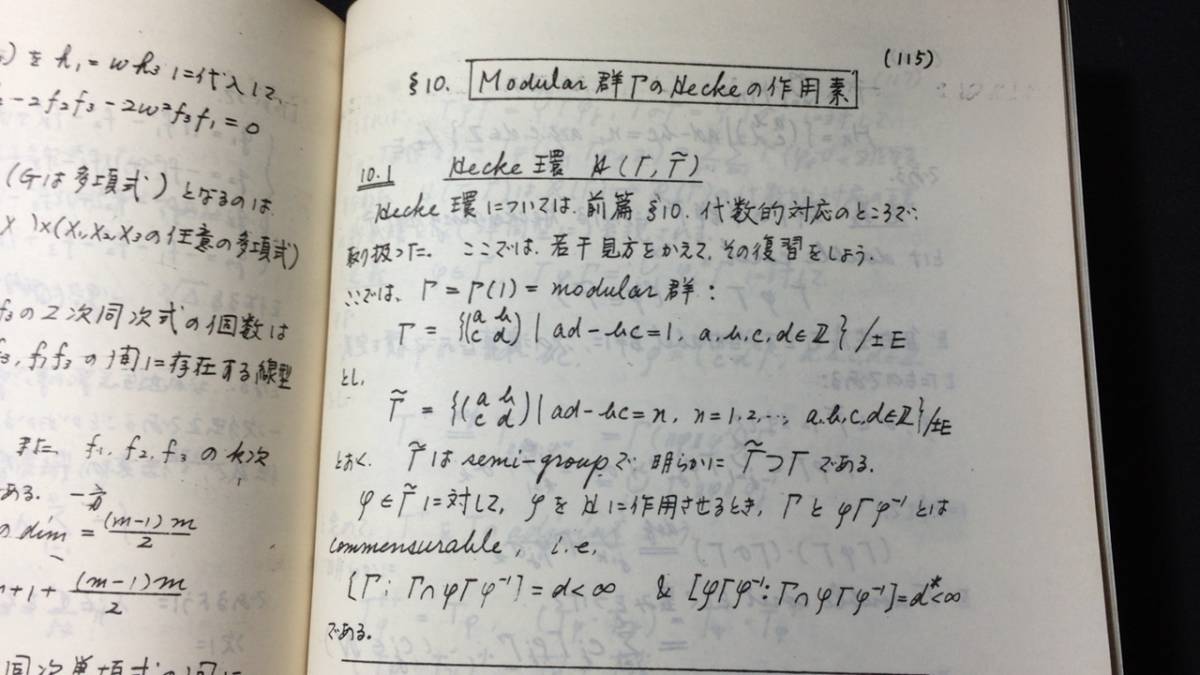 ) を h₁ = wh₃ に代入して、
- 2f₂f₃ - 2w²f₃f₁ = 0
(Gは多項式) となるのは
X ) × (X₁, X₂, X₃の任意の多項式)
f₃の2次同次式の個数は
f₃, f₁f₃ の間に存在する線型
また、 f₁, f₂, f₃ の
ある.
の dim = (m-1)m/2
+1 + (m-1)m/2
同次単項式の間に
(115)
§10. Modular 群 Γ の Hecke の作用素
10.1 Hecke 環 H(Γ, Γ̃)
Hecke 環については、前篇 §10. 代数的対応のところで、
取り扱った。 ここでは、若干見方をかえて、その復習をしよう.
ここでは、 Γ = Γ(1) = modular 群 :
Γ = {(a b c d) | ad - bc = 1, a, b, c, d ∈ Z} / ±E
とし、
Γ̃ = {(a b c d) | ad - bc = n, n = 1, 2, ..., a, b, c, d ∈ Z} / ±E
とおく. Γ̃ は semi-group で 明らかに Γ̃ ⊃ Γ である.
φ ∈ Γ̃ に対して, φ を H に作用させるとき, Γ と φΓφ⁻¹ とは
commensurable, i.e.
[Γ : Γ ∩ φΓφ⁻¹] = d < ∞ & [φΓφ⁻¹ : Γ ∩ φΓφ⁻¹] = d* < ∞
である.